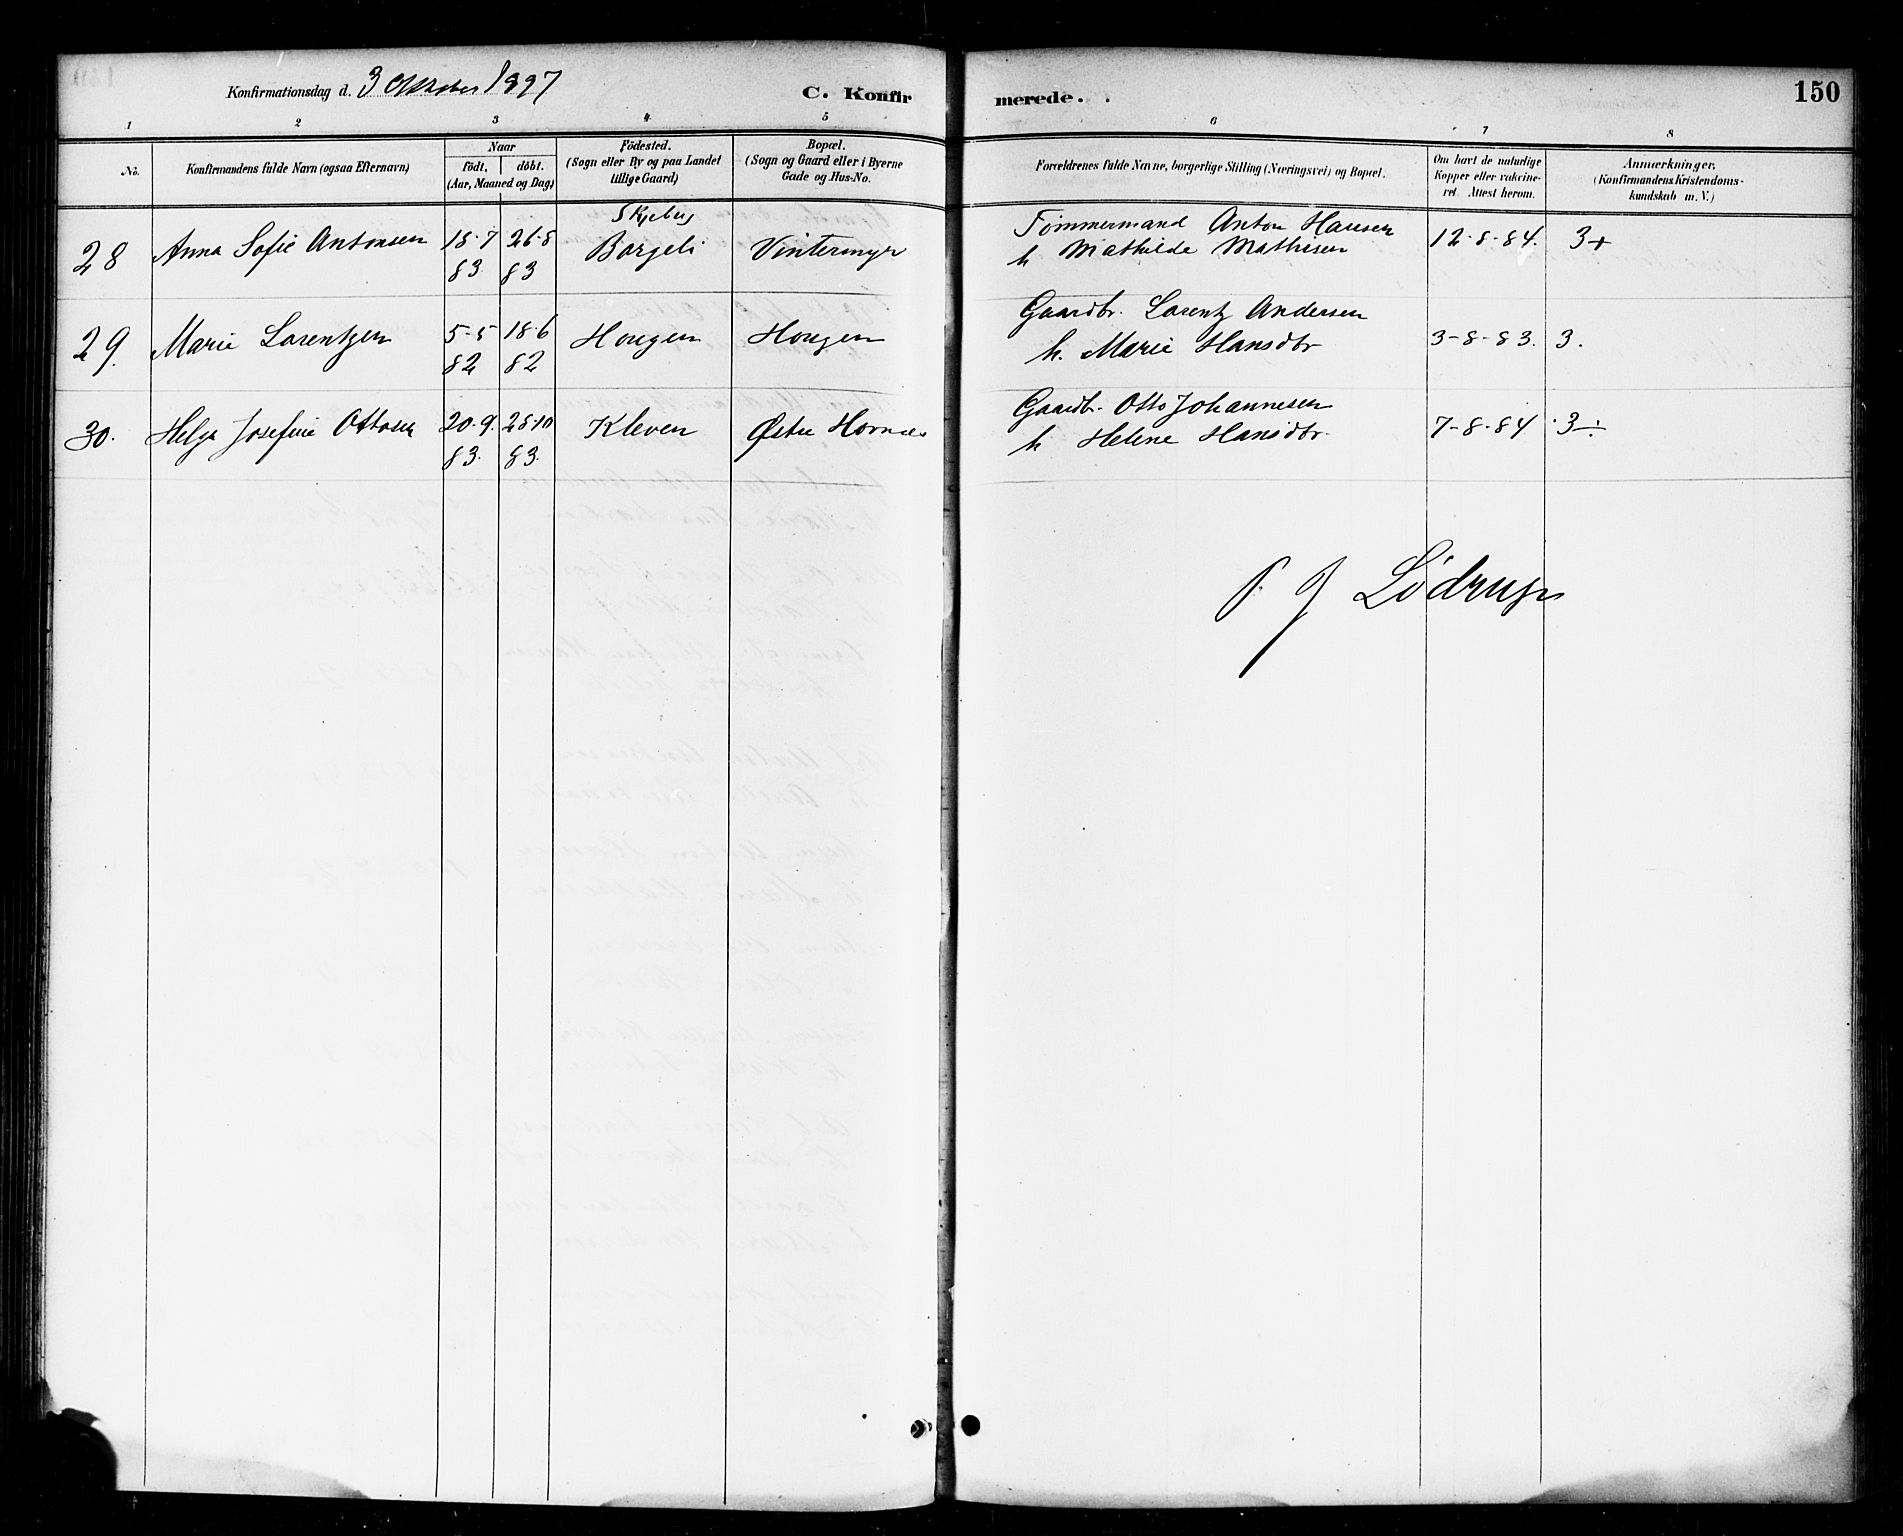 Konfirmationsdag d. 3 Oktober 1897
C. Konfir
merede.
150
1 2 3 4 5 6 7 8
No.
Konfirmandens fulde Navn (ogsaa Efternavn)
Naar
født, døbt.
(Aar, Maaned og Dag)
Fødested.
(Sogn eller By og paa Landet
tillige Gaard)
Bopæl.
(Sogn og Gaard eller i Byerne
Gade og Hus-No.
Forældrenes fulde Navne, borgerlige Stilling (Næringsvei) og Bopæl.
Om havt de naturlige
Kopper eller vakcine-
ret. Attest herom.
Anmærkninger,
(Konfirmandens Kristendoms-
kundskab m. V.)
28 Anna Sofie Antonsen 18-7 83 26-8 83 Skjeberg Borgeli Vintermyr
Tømmermand Anton Hansen
h Mathilde Mathisen
12-8-84. 3+
29. Marie Lorentzen 5-5 82 18-6 82 Hougen Hougen
Gaardbr. Lorentz Andersen
h. Marie Hansdtr
3-8-83. 3.
30. Helga Josefine Ottosen 20-9. 83. 28-10 83. Kleven Østre Hornes
Gaardbr. Otto Johannesen
h Helene Hansdtr.
7-8-84 3÷
P J Lødrup